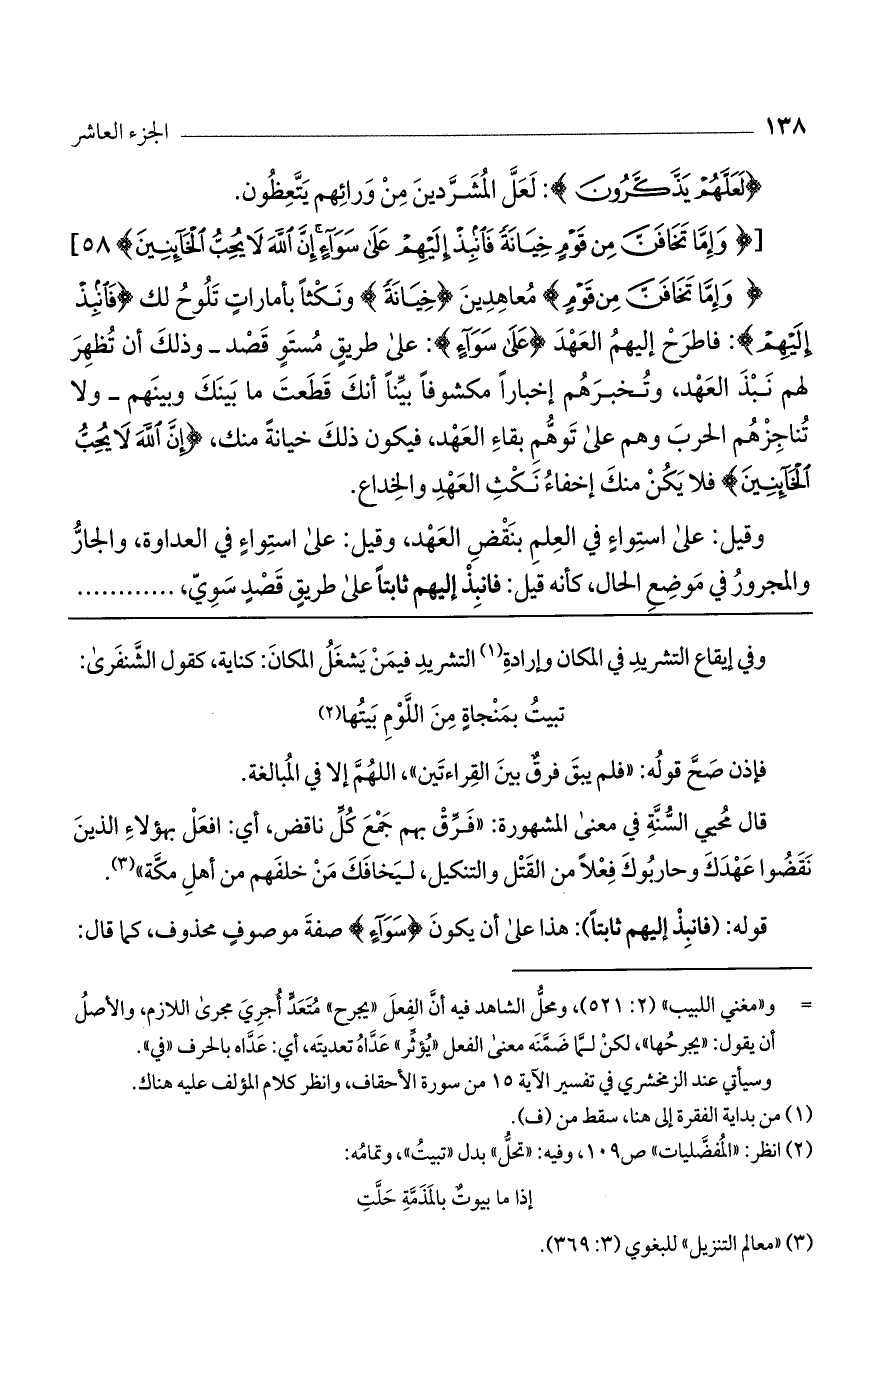 ١٣٨ الجزء العاشر
﴿لَعَلَّهُمْ يَذَّكَّرُونَ﴾: لَعَلَّ المُشَرَّدينَ مِنْ وَرائِهم يَتَّعِظُون.
[﴿وَإِمَّا تَخَافَنَّ مِن قَوْمٍ خِيَانَةً فَٱنۢبِذْ إِلَيْهِمْ عَلَىٰ سَوَآءٍ إِنَّ ٱللَّهَ لَا يُحِبُّ ٱلْخَآئِنِينَ﴾ ٥٨]
﴿وَإِمَّا تَخَافَنَّ مِن قَوْمٍ﴾ مُعاهِدِينَ ﴿خِيَانَةً﴾ ونَكْثاً بأماراتٍ تَلُوحُ لك ﴿فَٱنۢبِذْ
إِلَيْهِمْ﴾: فاطرَحْ إليهمُ العَهْدَ ﴿عَلَىٰ سَوَآءٍ﴾: علىٰ طريقٍ مُستَوٍ قَصْد ـ وذلكَ أن تُظهِرَ
لهم نَبْذَ العَهْد، وتُخبرَهُم إخباراً مكشوفاً بيِّناً أنكَ قَطَعتَ ما بَينَكَ وبينَهم ـ ولا
تُناجِزْهُم الحربَ وهم علىٰ تَوهُّمِ بقاءِ العَهْد، فيكون ذلكَ خيانةً منك، ﴿إِنَّ ٱللَّهَ لَا يُحِبُّ
ٱلْخَآئِنِينَ﴾ فلا يَكُنْ منكَ إخفاءُ نَكْثِ العَهْدِ والخِداع.
وقيل: علىٰ استِواءٍ في العِلمِ بنَقْضِ العَهْد، وقيل: علىٰ استِواءٍ في العداوة، والجارُّ
والمجرورُ في مَوضِعِ الحال، كأنه قيل: فانبِذْ إليهم ثابتاً علىٰ طريقٍ قَصْدٍ سَوِيّ، ............
وفي إيقاع التشريدِ في المكان وإرادةِ(١) التشريدِ فيمَنْ يَشغَلُ المكانَ: كناية، كقول الشَّنفَرىٰ:
تبيتُ بمَنْجاةٍ مِنَ اللَّوْمِ بَيتُها(٢)
فإذن صَحَّ قولُه: «فلم يبقَ فرقٌ بينَ القِراءتَين»، اللهُمَّ إلا في المُبالغة.
قال مُحيي السُّنَّةِ في معنىٰ المشهورة: «فَرِّقْ بهم جَمْعَ كُلِّ ناقض، أي: افعَلْ بهؤلاءِ الذينَ
نَقَضُوا عَهْدَكَ وحاربُوكَ فِعْلاً من القَتْل والتنكيل، ليَخافَكَ مَنْ خلفَهم من أهلِ مكَّة»(٣).
قوله: (فانبِذْ إليهم ثابتاً): هذا علىٰ أن يكونَ ﴿سَوَآءٍ﴾ صفةَ موصوفٍ محذوف، كما قال:
= و«مغني اللبيب» (٢: ٥٢١)، ومحلُّ الشاهد فيه أنَّ الفِعلَ «يجرح» مُتَعَدٍّ أُجرِيَ مجرىٰ اللازم، والأصلُ
أن يقول: «يجرحُها»، لكنْ لمَّا ضَمَّنَه معنىٰ الفعل «يُؤثِّر» عَدَّاهُ تعديتَه، أي: عَدَّاه بالحرف «في».
وسيأتي عند الزمخشري في تفسير الآية ١٥ من سورة الأحقاف، وانظر كلام المؤلف عليه هناك.
(١) من بداية الفقرة إلى هنا، سقط من (ف).
(٢) انظر: «المُفضَّليات» ص١٠٩، وفيه: «تحلُّ» بدل «تبيتُ»، وتمامُه:
إذا ما بيوتٌ بالمَذَمَّةِ حَلَّتِ
(٣) «معالم التنزيل» للبغوي (٣: ٣٦٩).